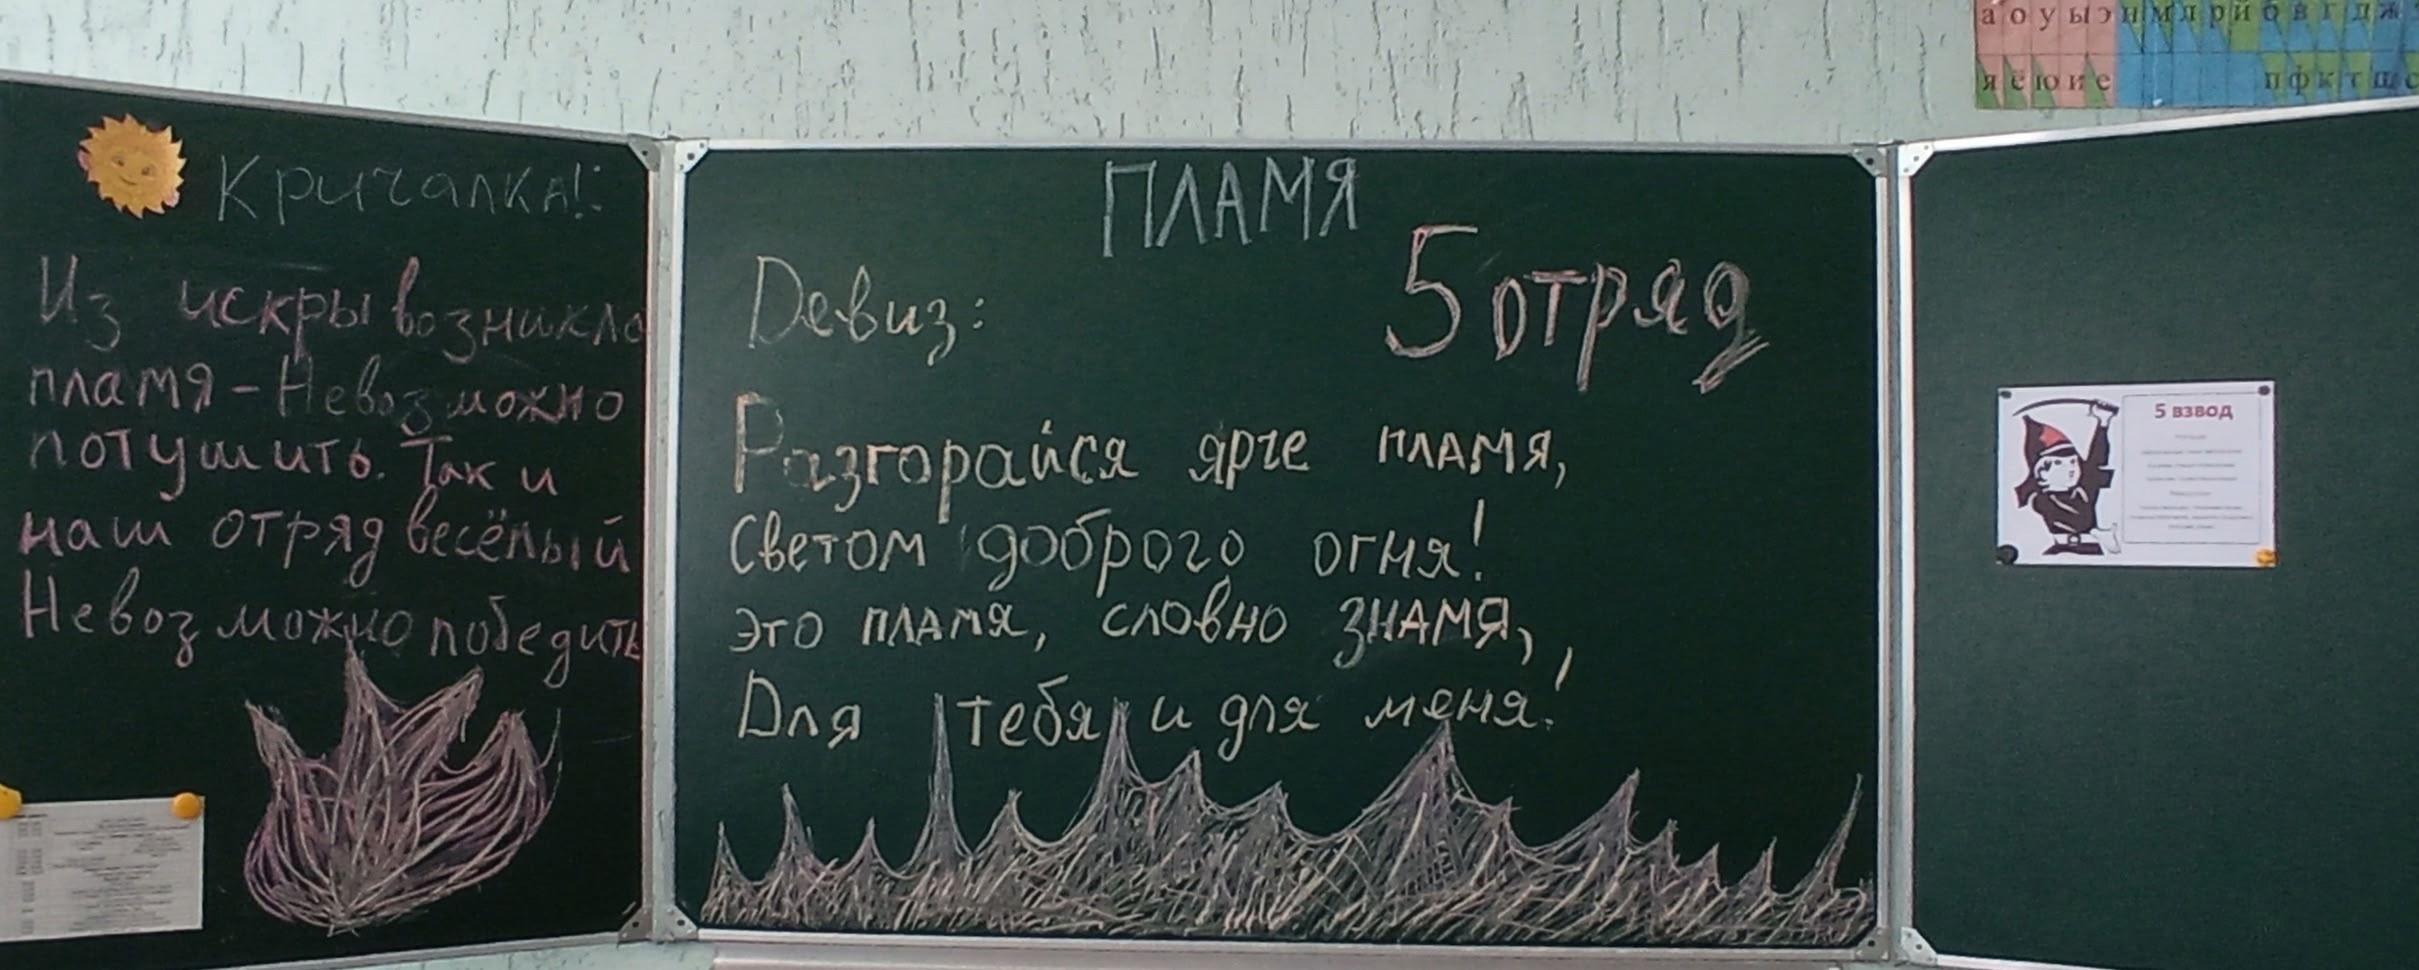 Кричалка!:
Из искры возникло
пламя - Невозможно
потушить. Так и
наш отряд весёлый
Невозможно победить
ПЛАМЯ
5 отряд
Девиз:
Разгорайся ярче пламя,
Светом доброго огня!
это пламя, словно знамя,
Для тебя и для меня!
а о у ы э н м л р й б в г д ж
я ё ю и е п ф к т ш с
5 ВЗВОД